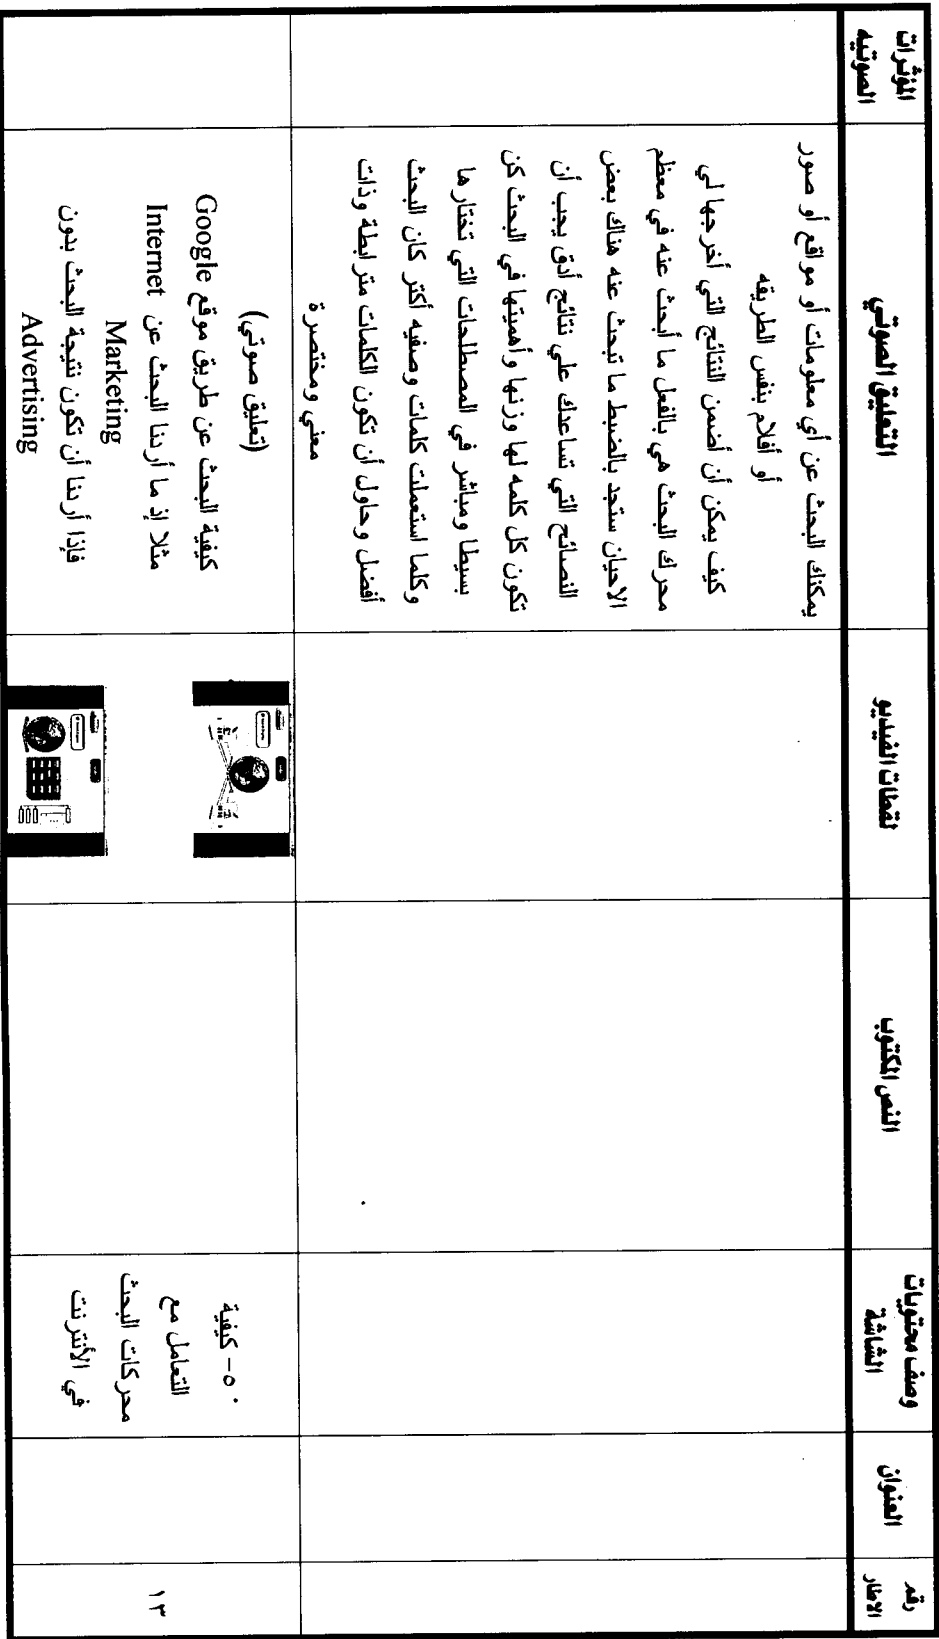 رقم
الاطار
العنوان
وصف محتويات
الشاشة
النص المكتوب
لقطات الفيديو
التعليق الصوتي
المؤثرات
الصوتيه
يمكنك البحث عن أي معلومات أو مواقع أو صور
أو أفلام بنفس الطريقه
كيف يمكن أن أضمن النتائج التي أخرجها لي
محرك البحث هي بالفعل ما أبحث عنه في معظم
الاحيان ستجد بالضبط ما تبحث عنه هناك بعض
النصائح التي تساعدك علي نتائج أدق يجب أن
تكون كل كلمه لها وزنها وأهميتها في البحث كن
بسيطا ومباشر في المصطلحات التي تختارها
وكلما استعملت كلمات وصفيه أكتر كان البحث
أفضل وحاول أن تكون الكلمات مترابطة وذات
معني ومختصرة
١٣
٥- كيفية
التعامل مع
محركات البحث
في الأنترنت
(تعليق صوتي)
كيفية البحث عن طريق موقع Google
مثلا إذ ما أردنا البحث عن Internet
Marketing
فإذا أردنا أن تكون نتيجة البحث بدون
Advertising